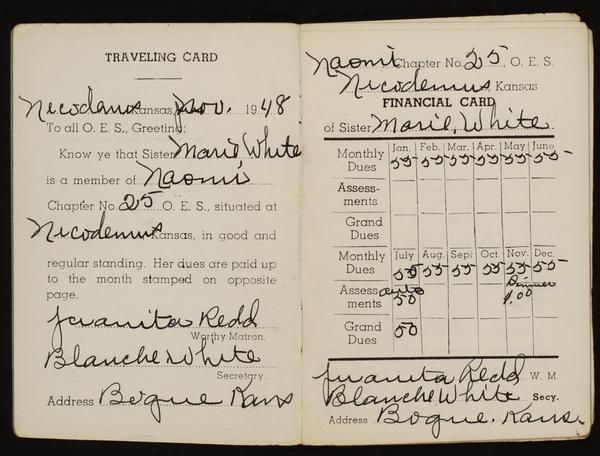 TRAVELING CARD
Nicodemus Kansas, Nov. 1948
To all O. E. S., Greeting:
Know ye that Sister Marie White
is a member of Naomi
Chapter No. 25 O. E. S., situated at
Nicodemus Kansas, in good and
regular standing. Her dues are paid up
to the month stamped on opposite
page.
Juanita Redd
Worthy Matron.
Blanche White
Secretary.
Address Bogue Kans
Naomi Chapter No. 25, O. E. S.
Nicodemus, Kansas
FINANCIAL CARD
of Sister Marie, White
Jan. Feb. Mar. Apr. May June
Monthly Dues 55 55 55 55 55 55
Assess-
ments
Grand
Dues
July Aug. Sept Oct. Nov. Dec.
Monthly Dues 55 55 55 55 55 55
Assess-
ments 50 Dinner 1.00
Grand
Dues 50
Juanita Redd W. M.
Blanche White. Secy.
Address Bogue. Kans.